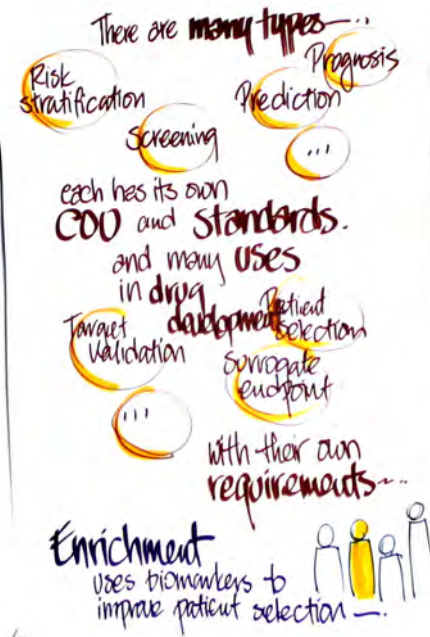 There are many types-..
Prognosis
Risk
stratification
Prediction
Screening
...
each has its own
COU and standards.
and many uses
in drug
development
Patient
selection
Target
validation
surrogate
endpoint
...
with their own
requirements-..
Enrichment
uses biomarkers to
improve patient selection-.